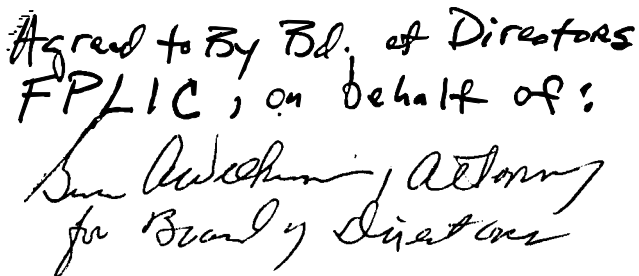 Agreed to By Bd. of Directors
FPLIC, on behalf of:
, Attorney
for Board of Directors